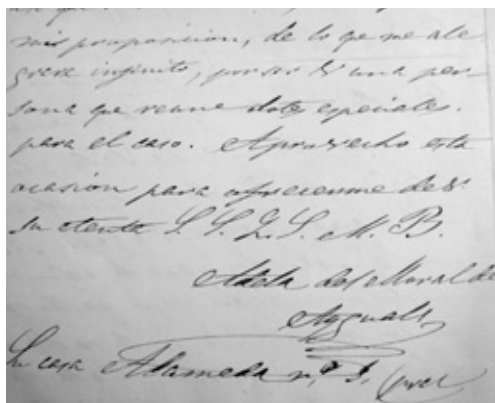 mi proposicion, de lo qe me ale
graré infinito, por ser V. una per-
sona que reune dotes especiales
para el caso. Aprovecho esta
ocasión para ofrecerme de V.
su atenta S. S. Q. S. M. B.
Adela del Moral de
Ayguals
Su casa Alameda n.º